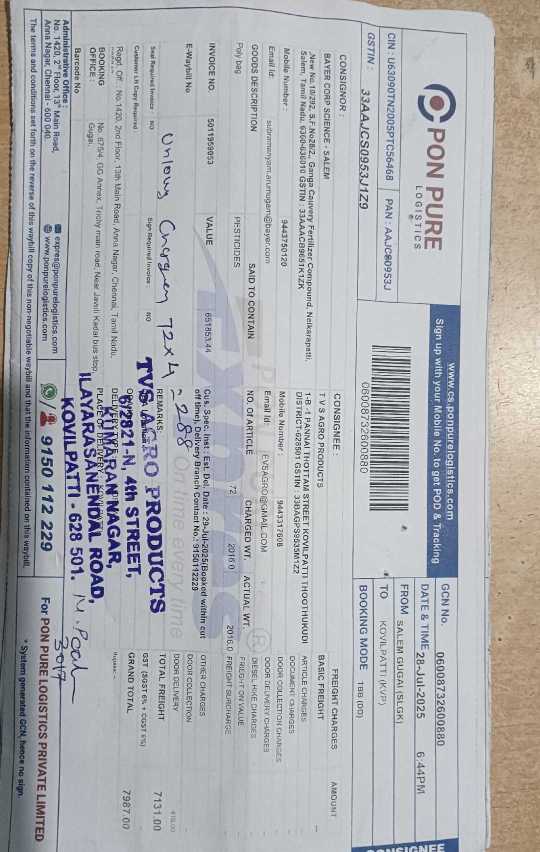 PON PURE
LOGISTICS
www.cs.ponpurelogistics.com
Sign up with your Mobile No. to get POD & Tracking
CIN : U63090TN2005PTC56468 PAN : AAJCS0953J
GSTIN : 33AAJCS0953J1Z9
06008732600880
GCN No. 06008732600880
DATE & TIME 28-Jul-2025 6:44PM
FROM SALEM GUGAI (SLGK)
TO KOVILPATTI (KVP)
BOOKING MODE TBB (DD)
CONSIGNOR :
BAYER CORP SCIENCE - SALEM
,New No.10/292, S.F.No28/2,, Ganga Cauvery Fertilizer Compound, Neikarapatti,
Salem, Tamil Nadu, 6360-636010 GSTIN : 33AAACB9651K1ZK
Mobile Number : 9443750120
Email Id: subramaniyam.arumugam@bayer.com
CONSIGNEE :
T V S AGRO PRODUCTS
1-B -1 PANNAI THOTTAM STREET KOVILPATTI THOOTHUKUDI
DISTRICT-628501 GSTIN : 33BAGPS9635M1Z2
Mobile Number : 9443317608
Email Id: EVSAGRO@GMAIL.COM
FREIGHT CHARGES AMOUNT
BASIC FREIGHT
ARTICLE CHARGES
DOCUMENT CHARGES
DOOR COLLECTION CHARGES
DOOR DELIVERY CHARGES
DIESEL HIKE CHARGES
FREIGHT ON VALUE
FREIGHT SURCHARGE
OTHER CHARGES
DOOR COLLECTION
DOOR DELIVERY
TOTAL FREIGHT 7131.00
GST (SGST 6% + CGST 6%)
GRAND TOTAL 7987.00
GOODS DESCRIPTION SAID TO CONTAIN NO. OF ARTICLE CHARGED WT. ACTUAL WT.
Poly bag PESTICIDES 72 2016.0 2016.0
INVOICE NO. 5011959053 VALUE 651853.44
Cus. Spec. Inst : Est. Del. Date : 29-Jul-2025(Booked within cut
off time), Delivery Branch Contact No.: 9150112229
E-Waybill No
Seal Required Invoice : NO Sign Required Invoice : NO
REMARKS
Customer Lr Copy Required
72 x 4
= 288
Regd. Off : No.1420, 2nd Floor, 13th Main Road, Anna Nagar, Chennai, Tamil Nadu,
BOOKING OFFICE : No. 675/4, GG Annex, Trichy main road, Near Javuli Kadai bus stop,
Gugai,
Barcode No
TVS AGRO PRODUCTS
6/2821-N, 4th STREET,
KAMARAJ NAGAR,
ILAYARASANENDAL ROAD,
KOVILPATTI - 628 501.
30/7
Administrative Office :
No. 1420, 2nd Floor, 13th Main Road,
Anna Nagar, Chennai - 600 040.
expres@ponpurelogistics.com
www.ponpurelogistics.com
9150 112 229
For PON PURE LOGISTICS PRIVATE LIMITED
The terms and conditions set forth on the reverse of this waybill copy of this non-negotiable waybill and that the information contained on this waybill.
* System generated GCN, hence no sign.
CONSIGNEE